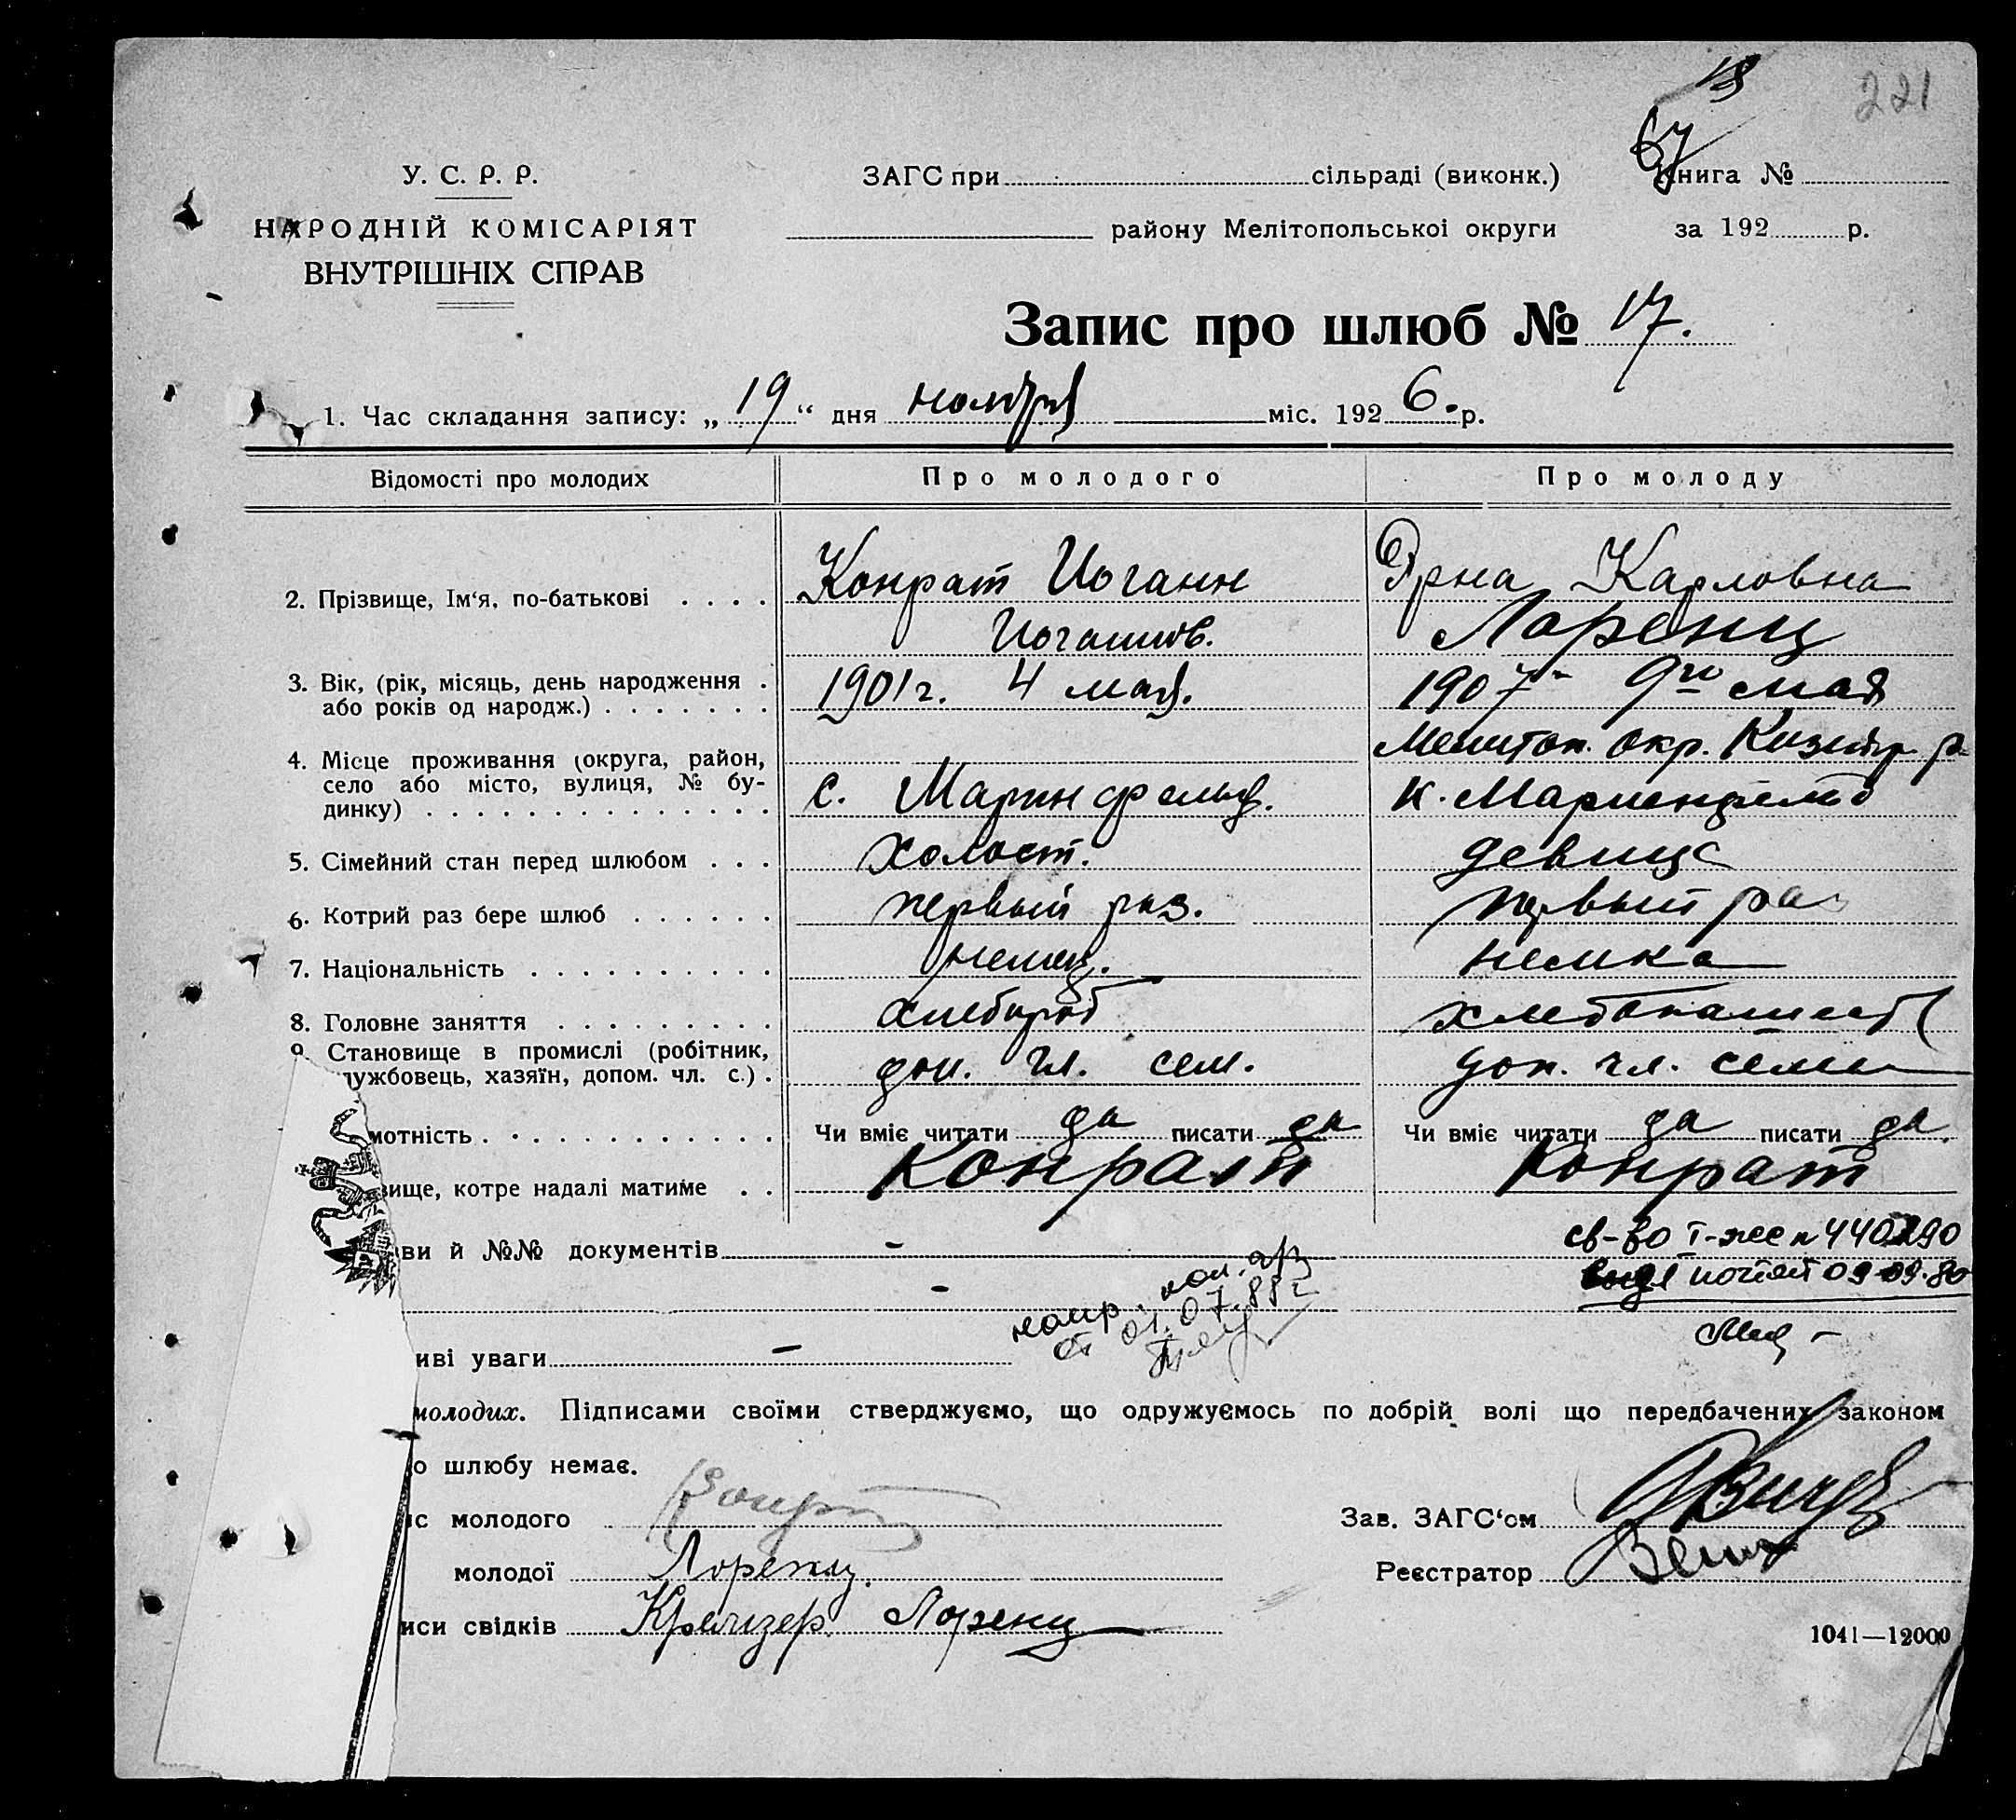 221
67
У. С. Р. Р.
НАРОДНІЙ КОМІСАРІЯТ
ВНУТРІШНІХ СПРАВ
ЗАГС при сільраді (виконк.)
району Мелітопольської округи
Книга №
за 192 р.
Запис про шлюб № 17.
1. Час складання запису: „19“ дня ноября міс. 1926. р.
Відомості про молодих Про молодого Про молоду
2. Прізвище, Ім‘я, по-батькові . . . . Конрат Иоганн Эрна Карловна
Иоганнов. Лоренц
3. Вік, (рік, місяць, день народження . 1901 г. 4 мая. 1907 9го мая
або років од народж.) . . . . . . .
Мелитоп. окр.
4. Місце проживання (округа, район,
село або місто, вулиця, № бу- с. Маринфельд. к. Мариенфельд
динку) . . . . . . . . . . . . . .
5. Сімейний стан перед шлюбом . . . Холост. девица
6. Котрий раз бере шлюб . . . . . . первый раз. первый раз
7. Національність . . . . . . . . . . . немец. немка
8. Головне заняття . . . . . . . . . хлебороб хлебопашест
9. Становище в промислі (робітник, доп. чл. сем. доп. чл. семьи
лужбовець, хазяїн, допом. чл. с.) .
мотність . . . . . . . . . . . . Чи вміє читати да писати да Чи вміє читати да писати да.
вище, котре надалі матиме . . Конрат Конрат
ви й №№ документів - св-во I-же
- 09-09-80
01.07.88г
иві уваги -
молодих. Підписами своїми стверджуємо, що одружуємось по добрій волі що передбачених законом
о шлюбу немає.
іс молодого Зав. ЗАГС‘ом
молодої Лоренц. Реєстратор
иси свідків Крейзер Лоренц
1041—12000